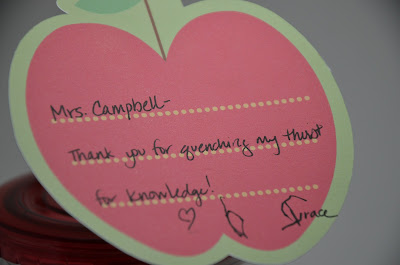 Mrs. Campbell-
Thank you for quenching my thirst
for knowledge!
♡ Grace